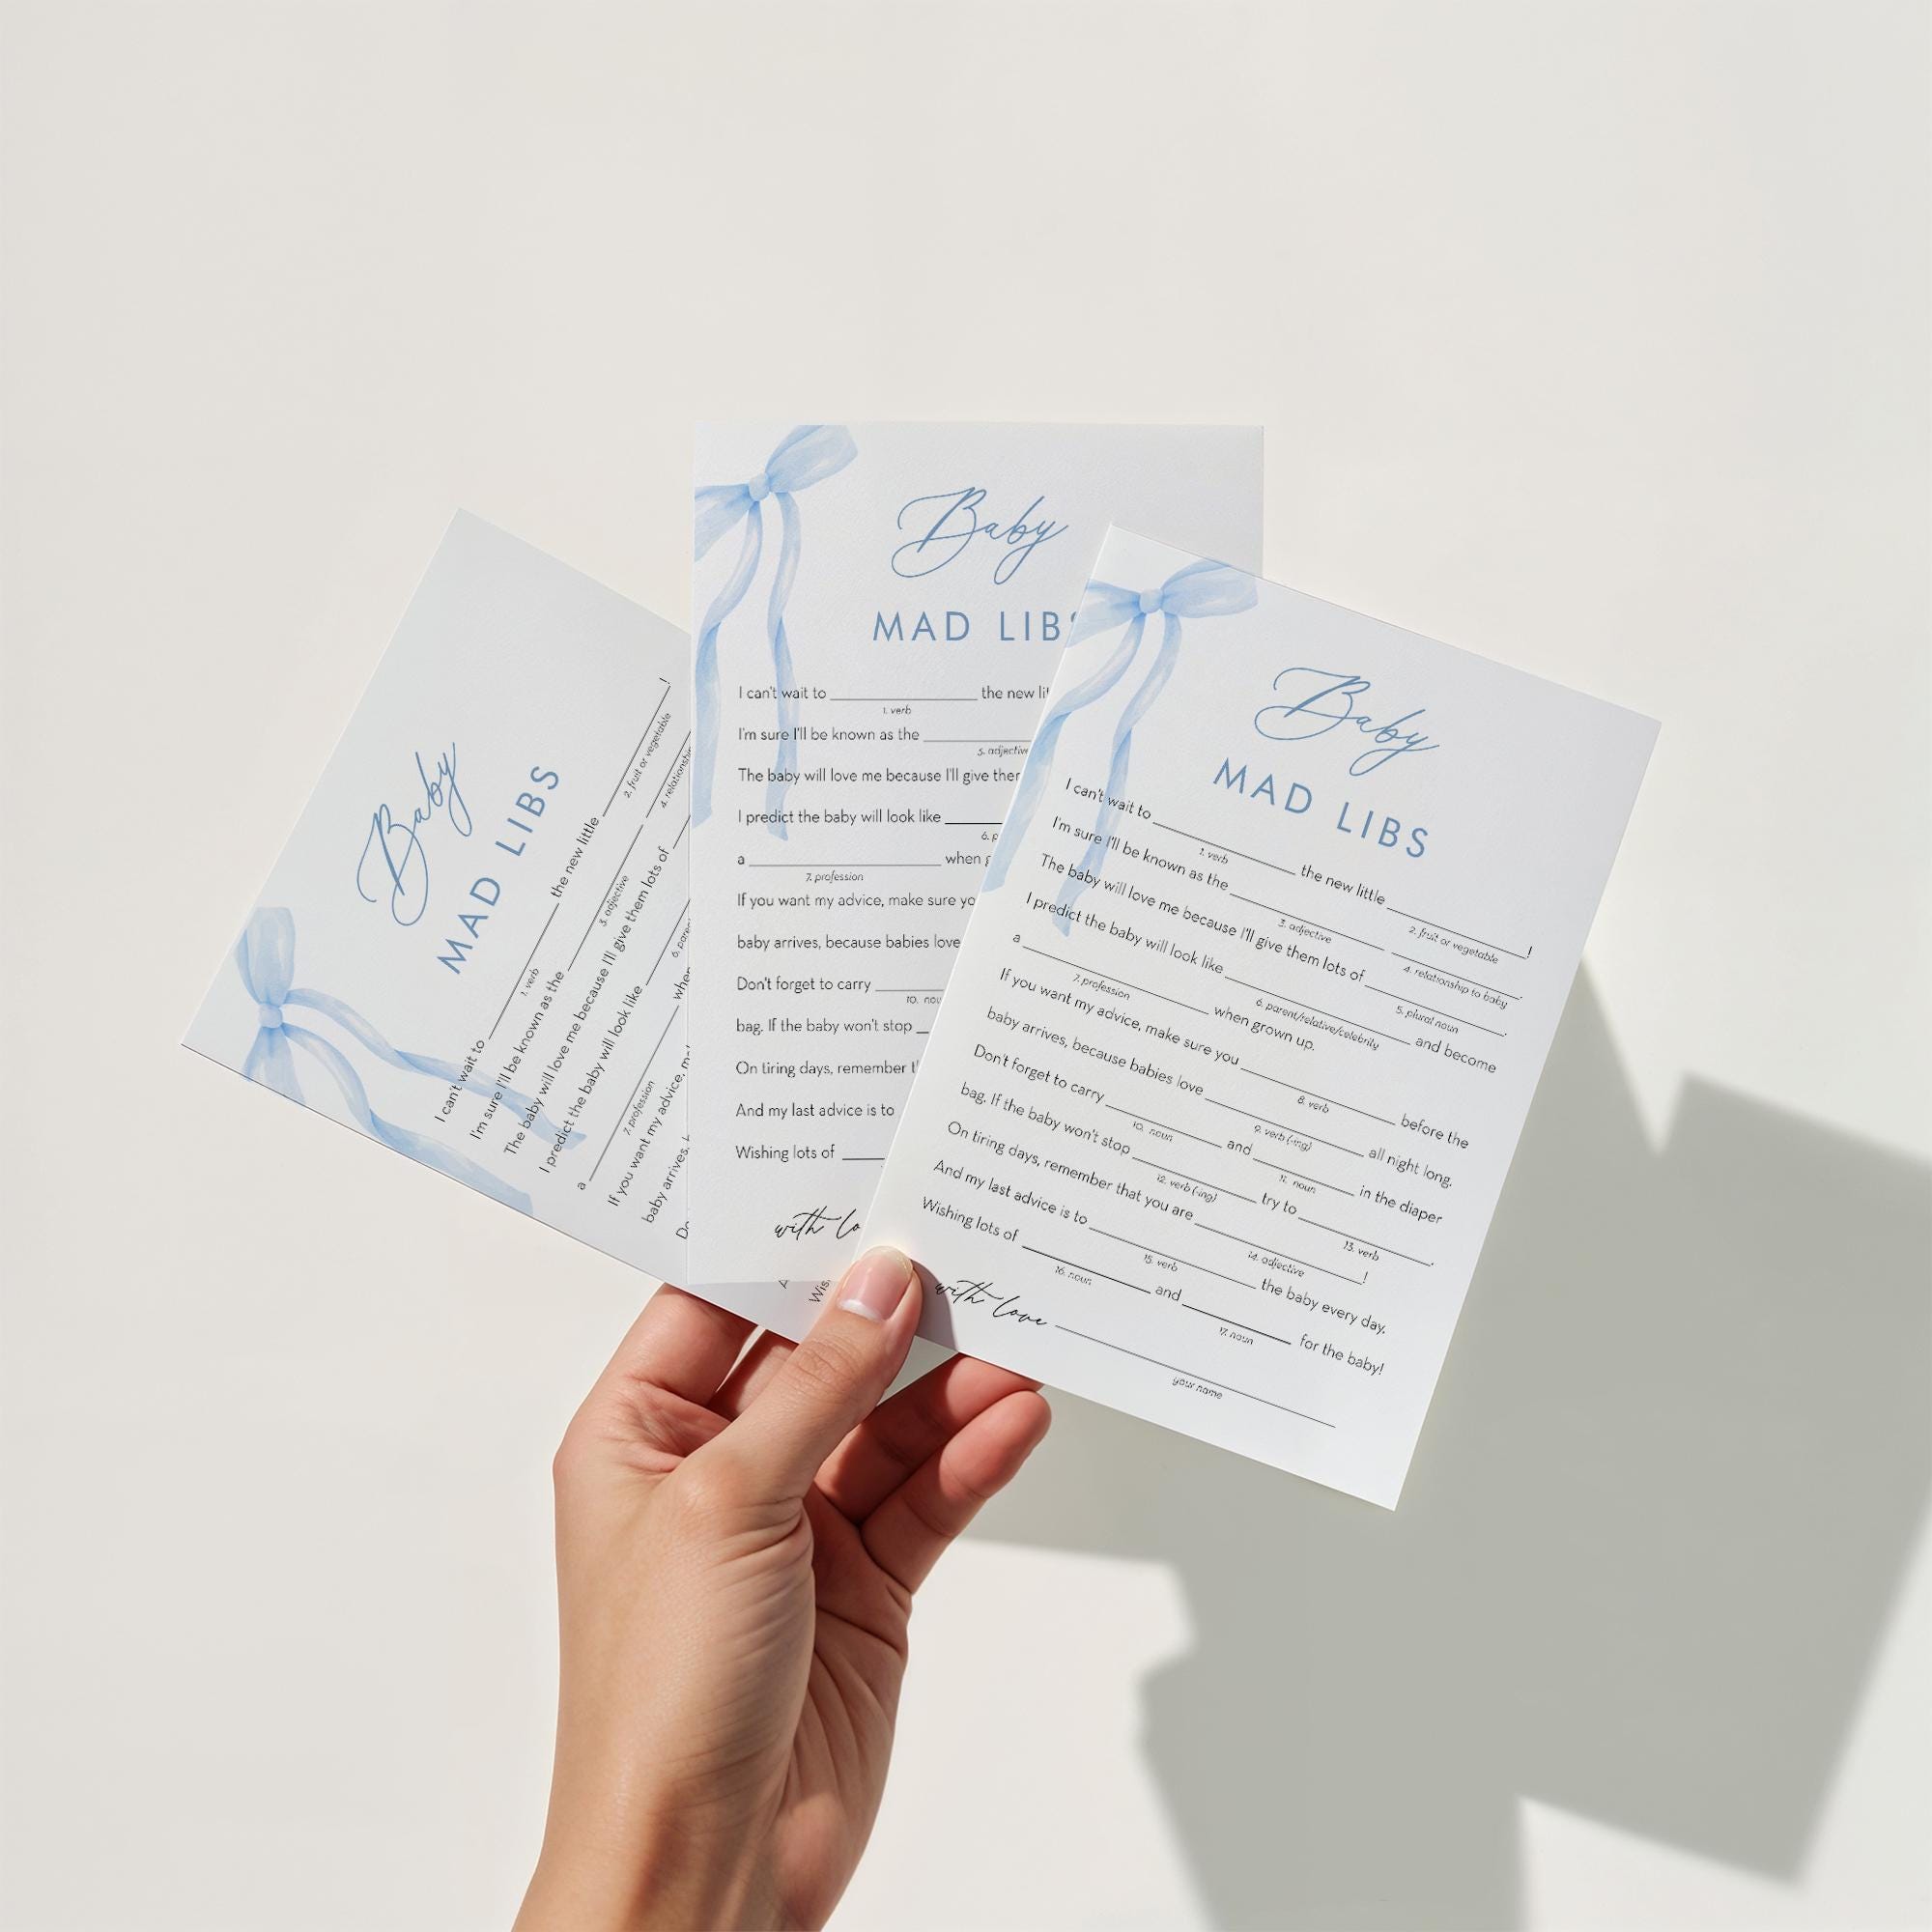 Baby
MAD LIBS
I can't wait to ____ the new little ____!
1. verb 2. fruit or vegetable
I'm sure I'll be known as the ____ ____
3. adjective 4. relationship
The baby will love me because I'll give them lots of ____
I predict the baby will look like ____
6. paren
a ____ when
7. profession
If you want my advice,
baby arrives,
Baby
MAD LIBS
I can't wait to ____ the new lit
1. verb
I'm sure I'll be known as the ____
5. adjective
The baby will love me because I'll give them
I predict the baby will look like ____
6. p
a ____ when g
7. profession
If you want my advice, make sure yo
baby arrives, because babies love
Don't forget to carry ____
10. nou
bag. If the baby won't stop ____
On tiring days, remember t
And my last advice is to
Wishing lots of ____
with lo
Wis
Baby
MAD LIBS
I can't wait to ____ the new little ____!
1. verb 2. fruit or vegetable
I'm sure I'll be known as the ____ ____.
3. adjective 4. relationship to baby
The baby will love me because I'll give them lots of ____.
5. plural noun
I predict the baby will look like ____ and become
6. parent/relative/celebrity
a ____ when grown up.
7. profession
If you want my advice, make sure you ____ before the
8. verb
baby arrives, because babies love ____ all night long.
9. verb (-ing)
Don't forget to carry ____ and ____ in the diaper
10. noun 11. noun
bag. If the baby won't stop ____ try to ____.
12. verb (-ing) 13. verb
On tiring days, remember that you are ____!
14. adjective
And my last advice is to ____ the baby every day.
15. verb
Wishing lots of ____ and ____ for the baby!
16. noun 17. noun
with love ____
your name